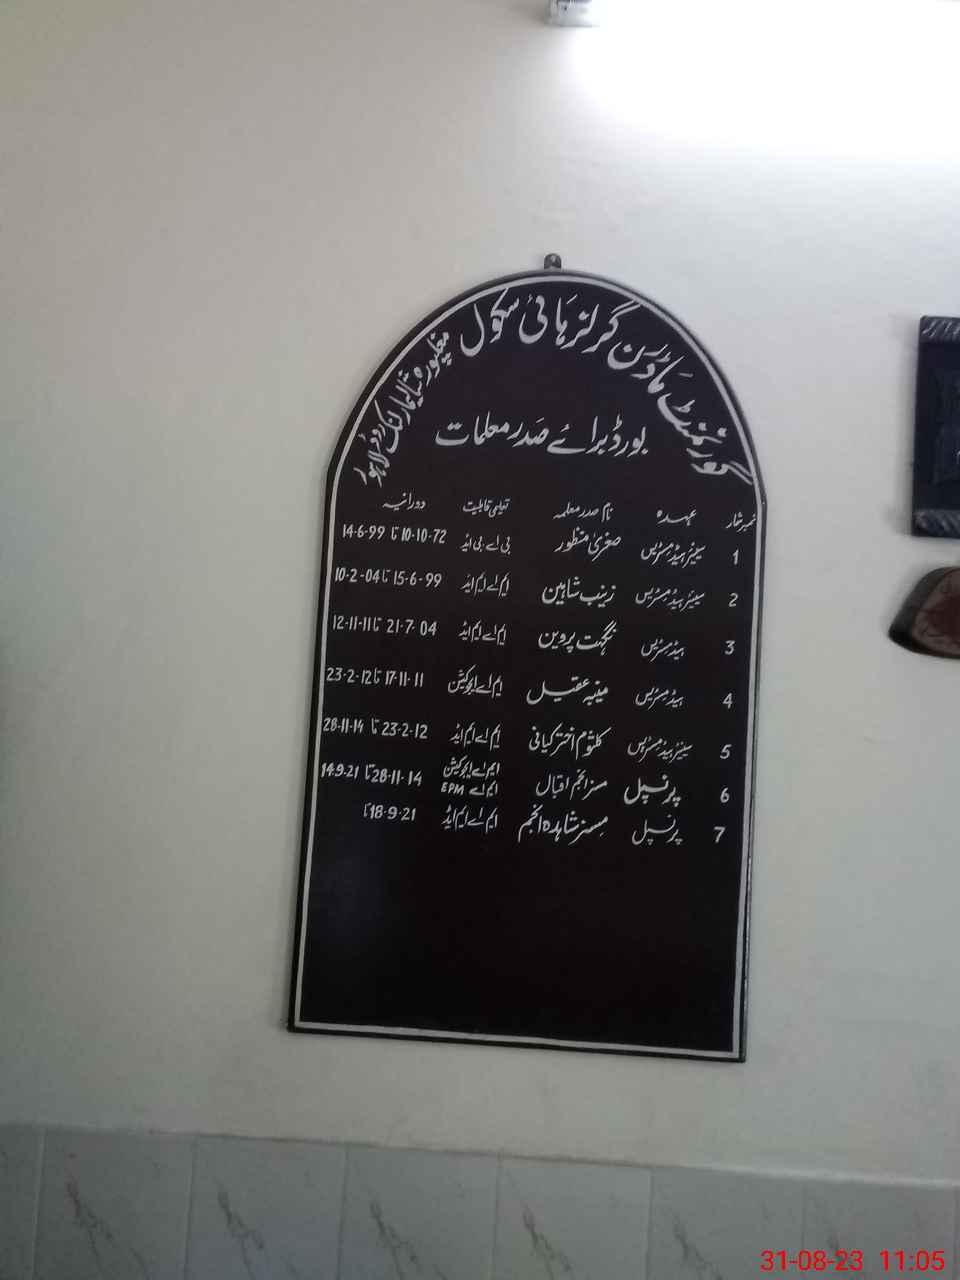 گورنمنٹ ماڈرن گرلز ہائی سکول مغلپورہ شالیمار لنک روڈ لاہور
بورڈ برائے صدر معلمات
نمبر شمار عہدہ نام صدر معلمہ تعلیمی قابلیت دورانیہ
1 سینئر ہیڈ مسٹریس صغریٰ منظور بی اے بی ایڈ 10-10-72 تا 14-6-99
2 سینئر ہیڈ مسٹریس زینب شاہین ایم اے ایم ایڈ 15-6-99 تا 10-2-04
3 ہیڈ مسٹریس نگہت پروین ایم اے ایم ایڈ 21-7-04 تا 12-11-11
4 ہیڈ مسٹریس عقیل ایم اے ایجوکیشن 17-11-11 تا 23-2-12
5 سینئر ہیڈ مسٹریس کلثوم اختر کیانی ایم اے ایم ایڈ 23-2-12 تا 28-11-14
6 پرنسپل مسز انجم اقبال ایم اے ایجوکیشن ایم اے EPM 28-11-14 تا 14-9-21
7 پرنسپل مسز شاہدہ انجم ایم اے ایم ایڈ 18-9-21 تا
31-08-23 11:05